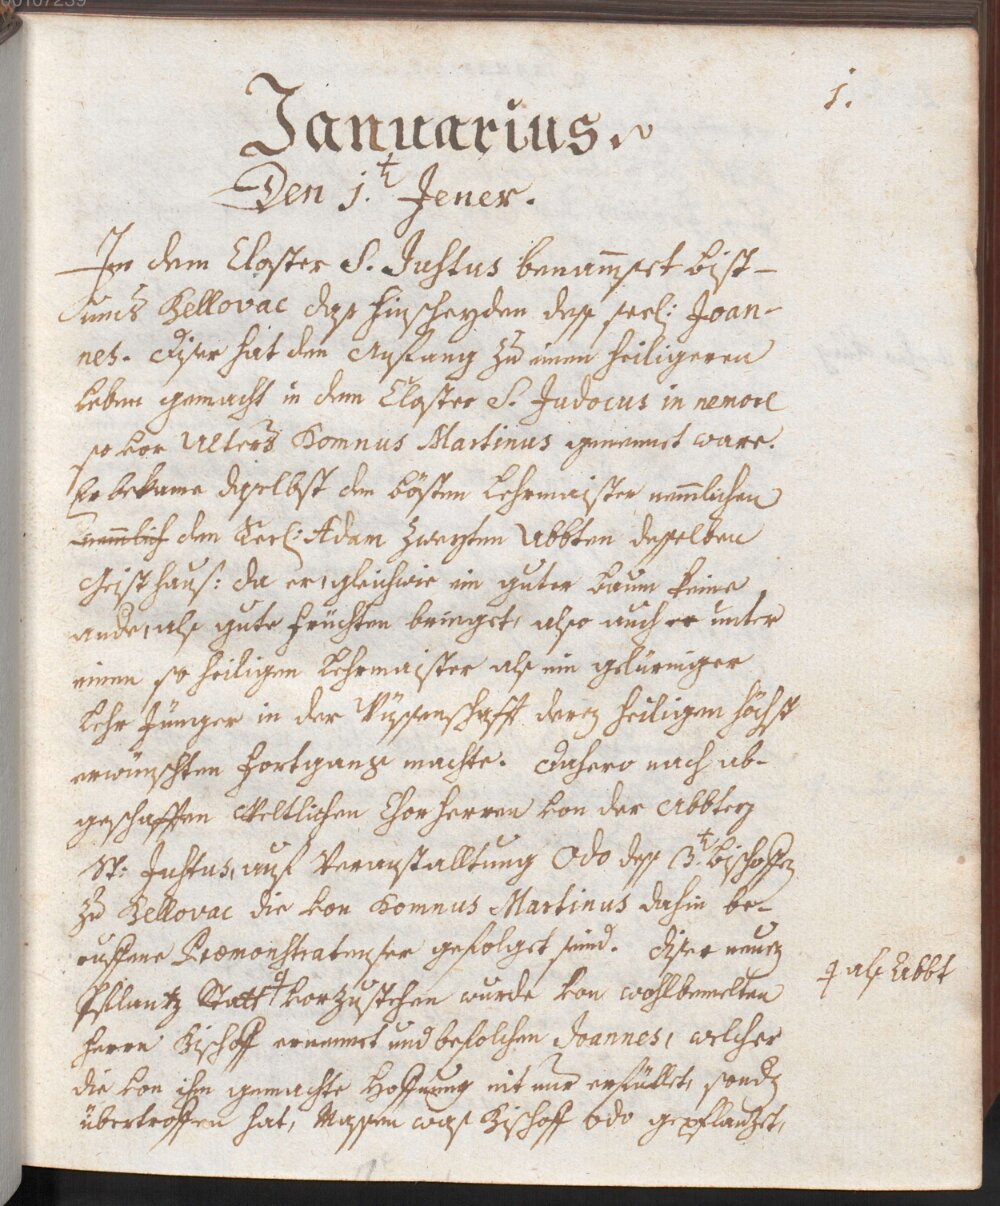 00107239
1.
Januarius.
Den 1.t Jener.
In dem Closter S. Justus benamset bist-
umbs Bellovac das hinscheyden dess seel: Joan-
nes. Diser hat den Anfang zu einen heiligeren
Leben gemacht in dem Closter S. Judocus in nemore
so vor Alters Domnus Martinus genennet ware.
Er bekame daselbst den bösten Lehrmaister nemmlichen
nemmlich den Seel: Adam Zweyten Abbten desselben
Geisthaus: da er, gleichwie ein guter baum keine
ande, als gute früchten bringet, also auch er unter
einen so heiligen Lehrmaister als ein gelürniger
Lehr Jünger in der Wüssenschafft deren heiligen höchst
erwünschten Fortgang machte. Dahero nach ab-
geschafften Weltlichen Chorherren von der Abbtey
St: Justus, auf Veranstalltung Odo dess 3.t bischoffen
zu Bellovac die von Domnus Martinus dahin be-
ruffene Praemonstratenser gefolget seind. Diser neuen
Pflantz Statt vorzustehen wurde von wohlbemelten
als Abbt
Herrn Bischoff ernennet und befolchen Joannes, welcher
die von ihm gemachte Hoffnung nit nur erfüllet, sonden
übertroffen hat, Massen was Bischoff Odo gepflantzet,